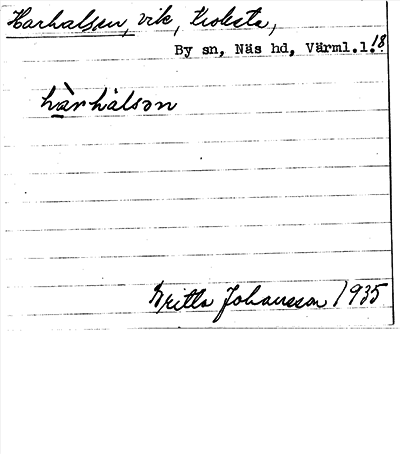 Harhalsen, vik, Kroksta,
By sn, Näs hd, Värml.l. 18
hàrhalsən
Britta Johansson 1935